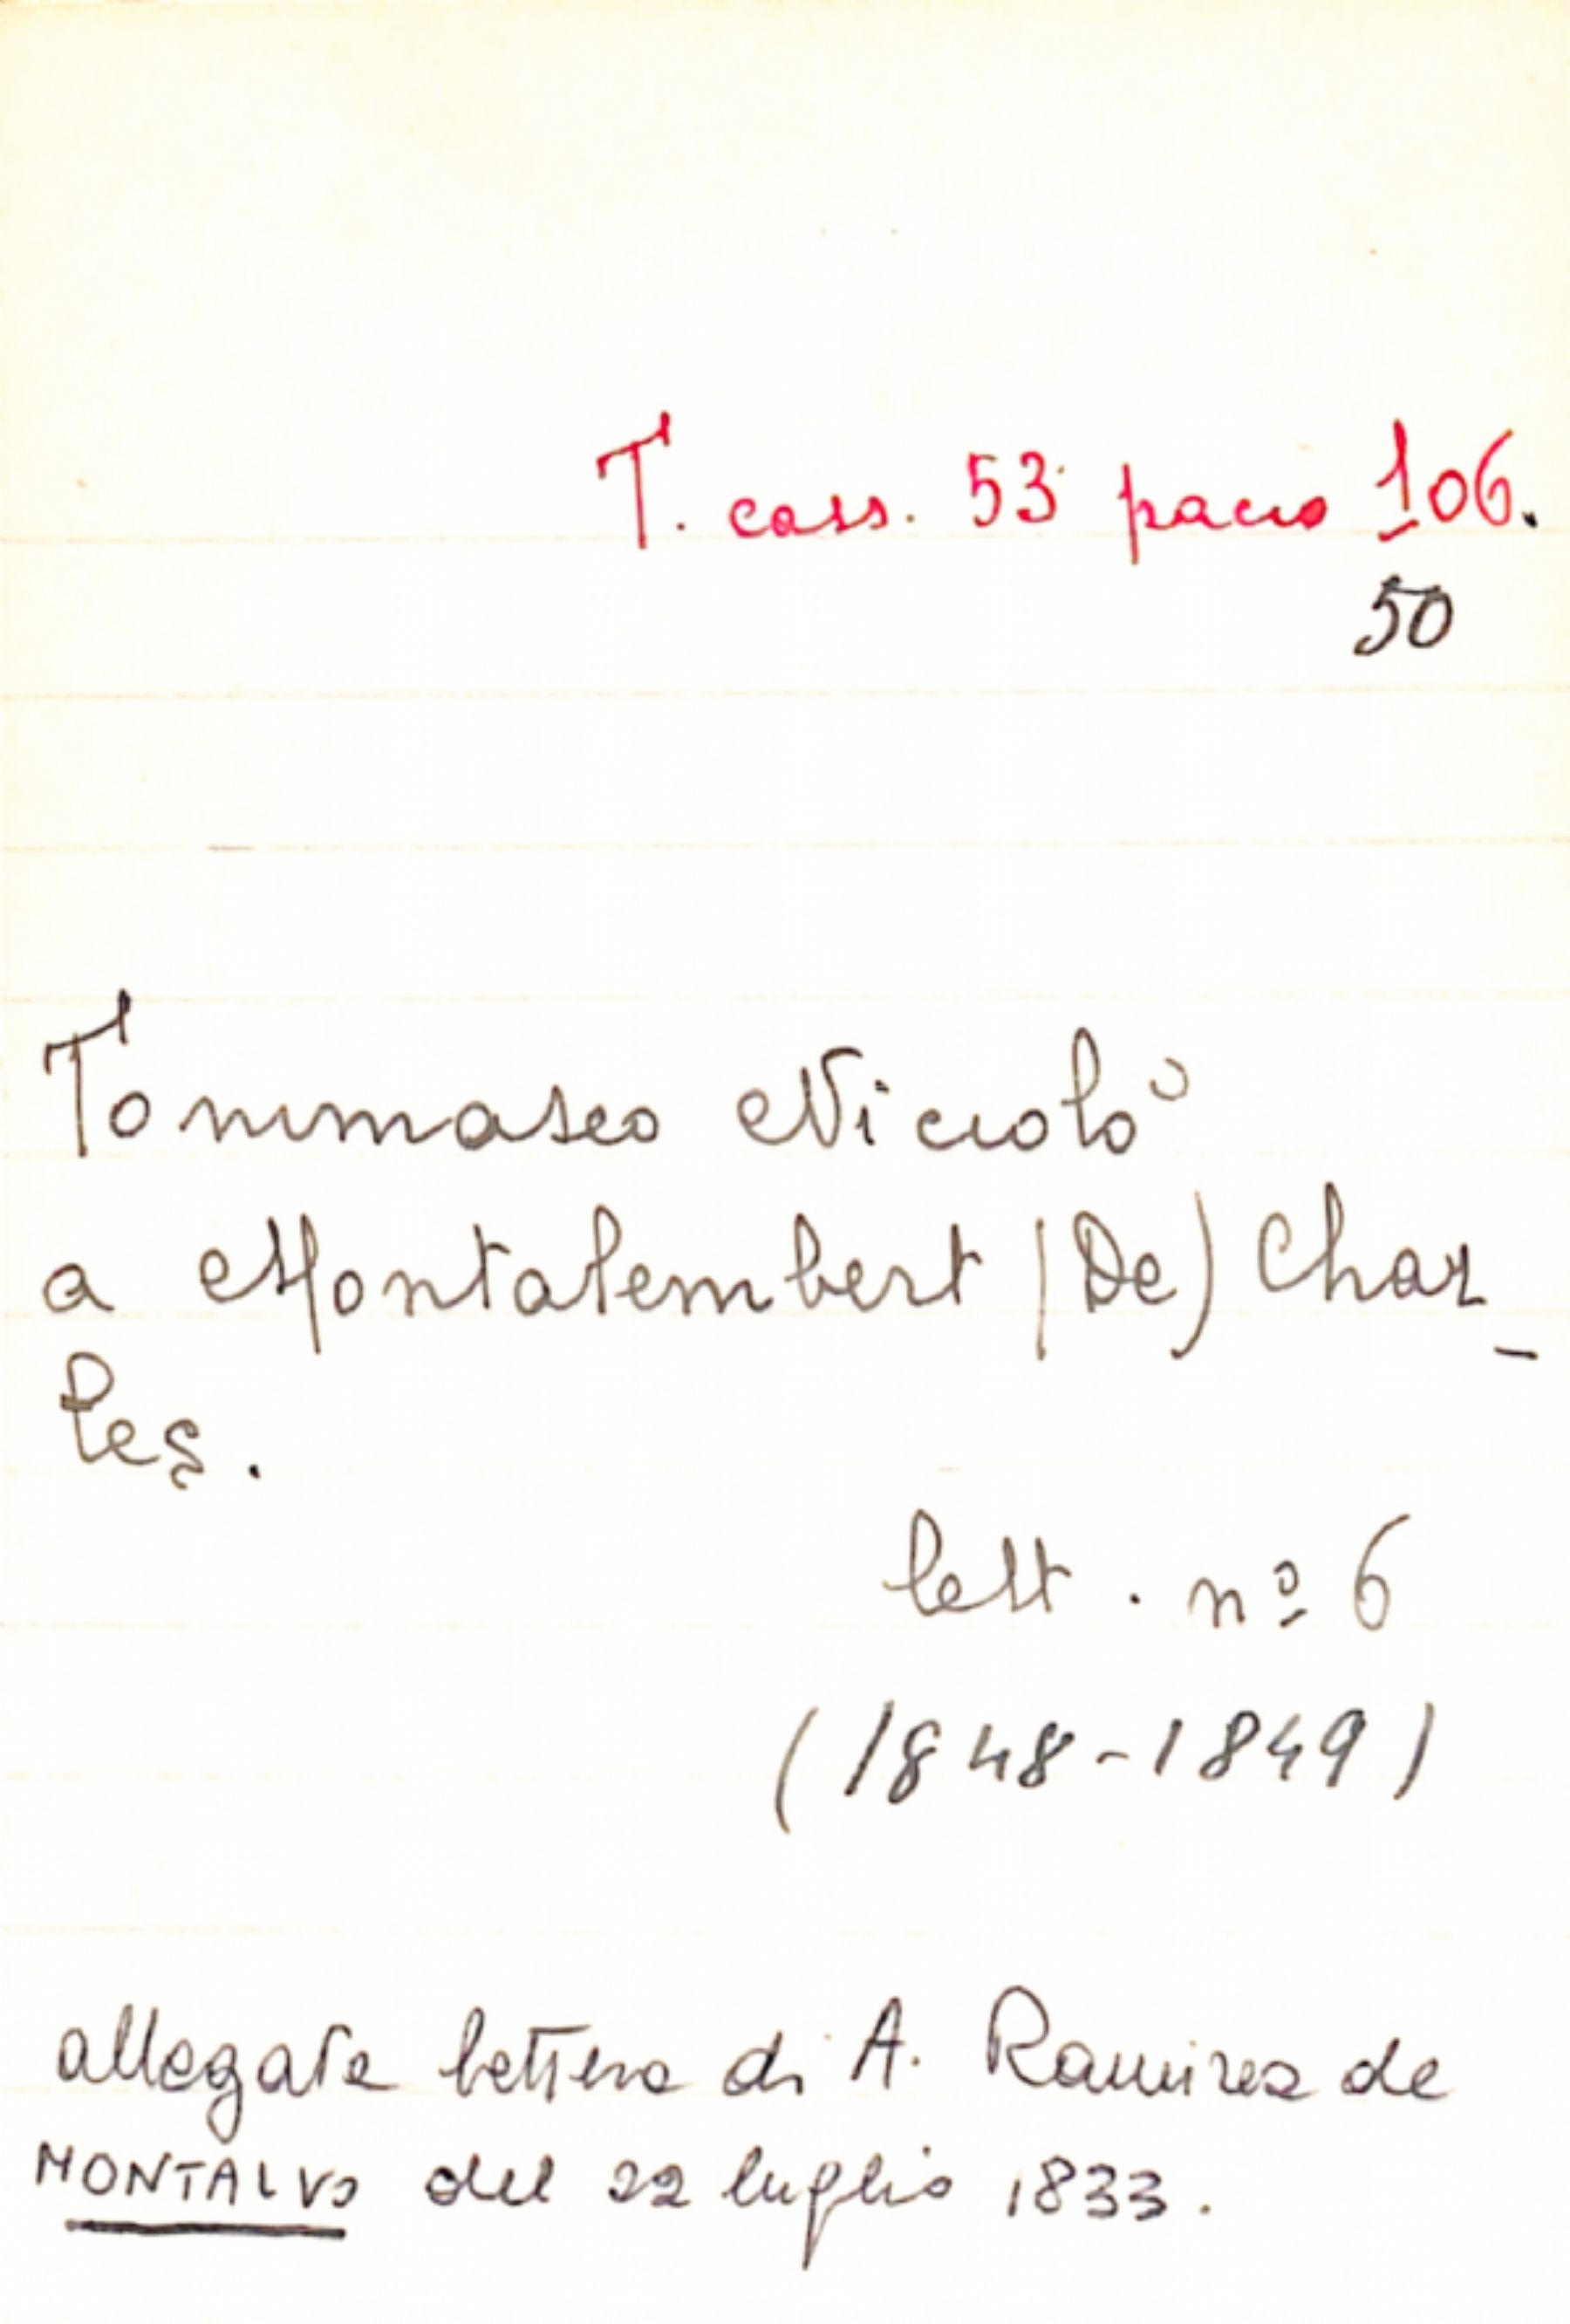 T. cass. 53 pacco 106.
50
Tommaseo Niccolò
a Montalembert (De) Char_
les.
lett. nº 6
(1848-1849)
allegata lettera di A. Ramirez de
MONTALVO del 22 luglio 1833.